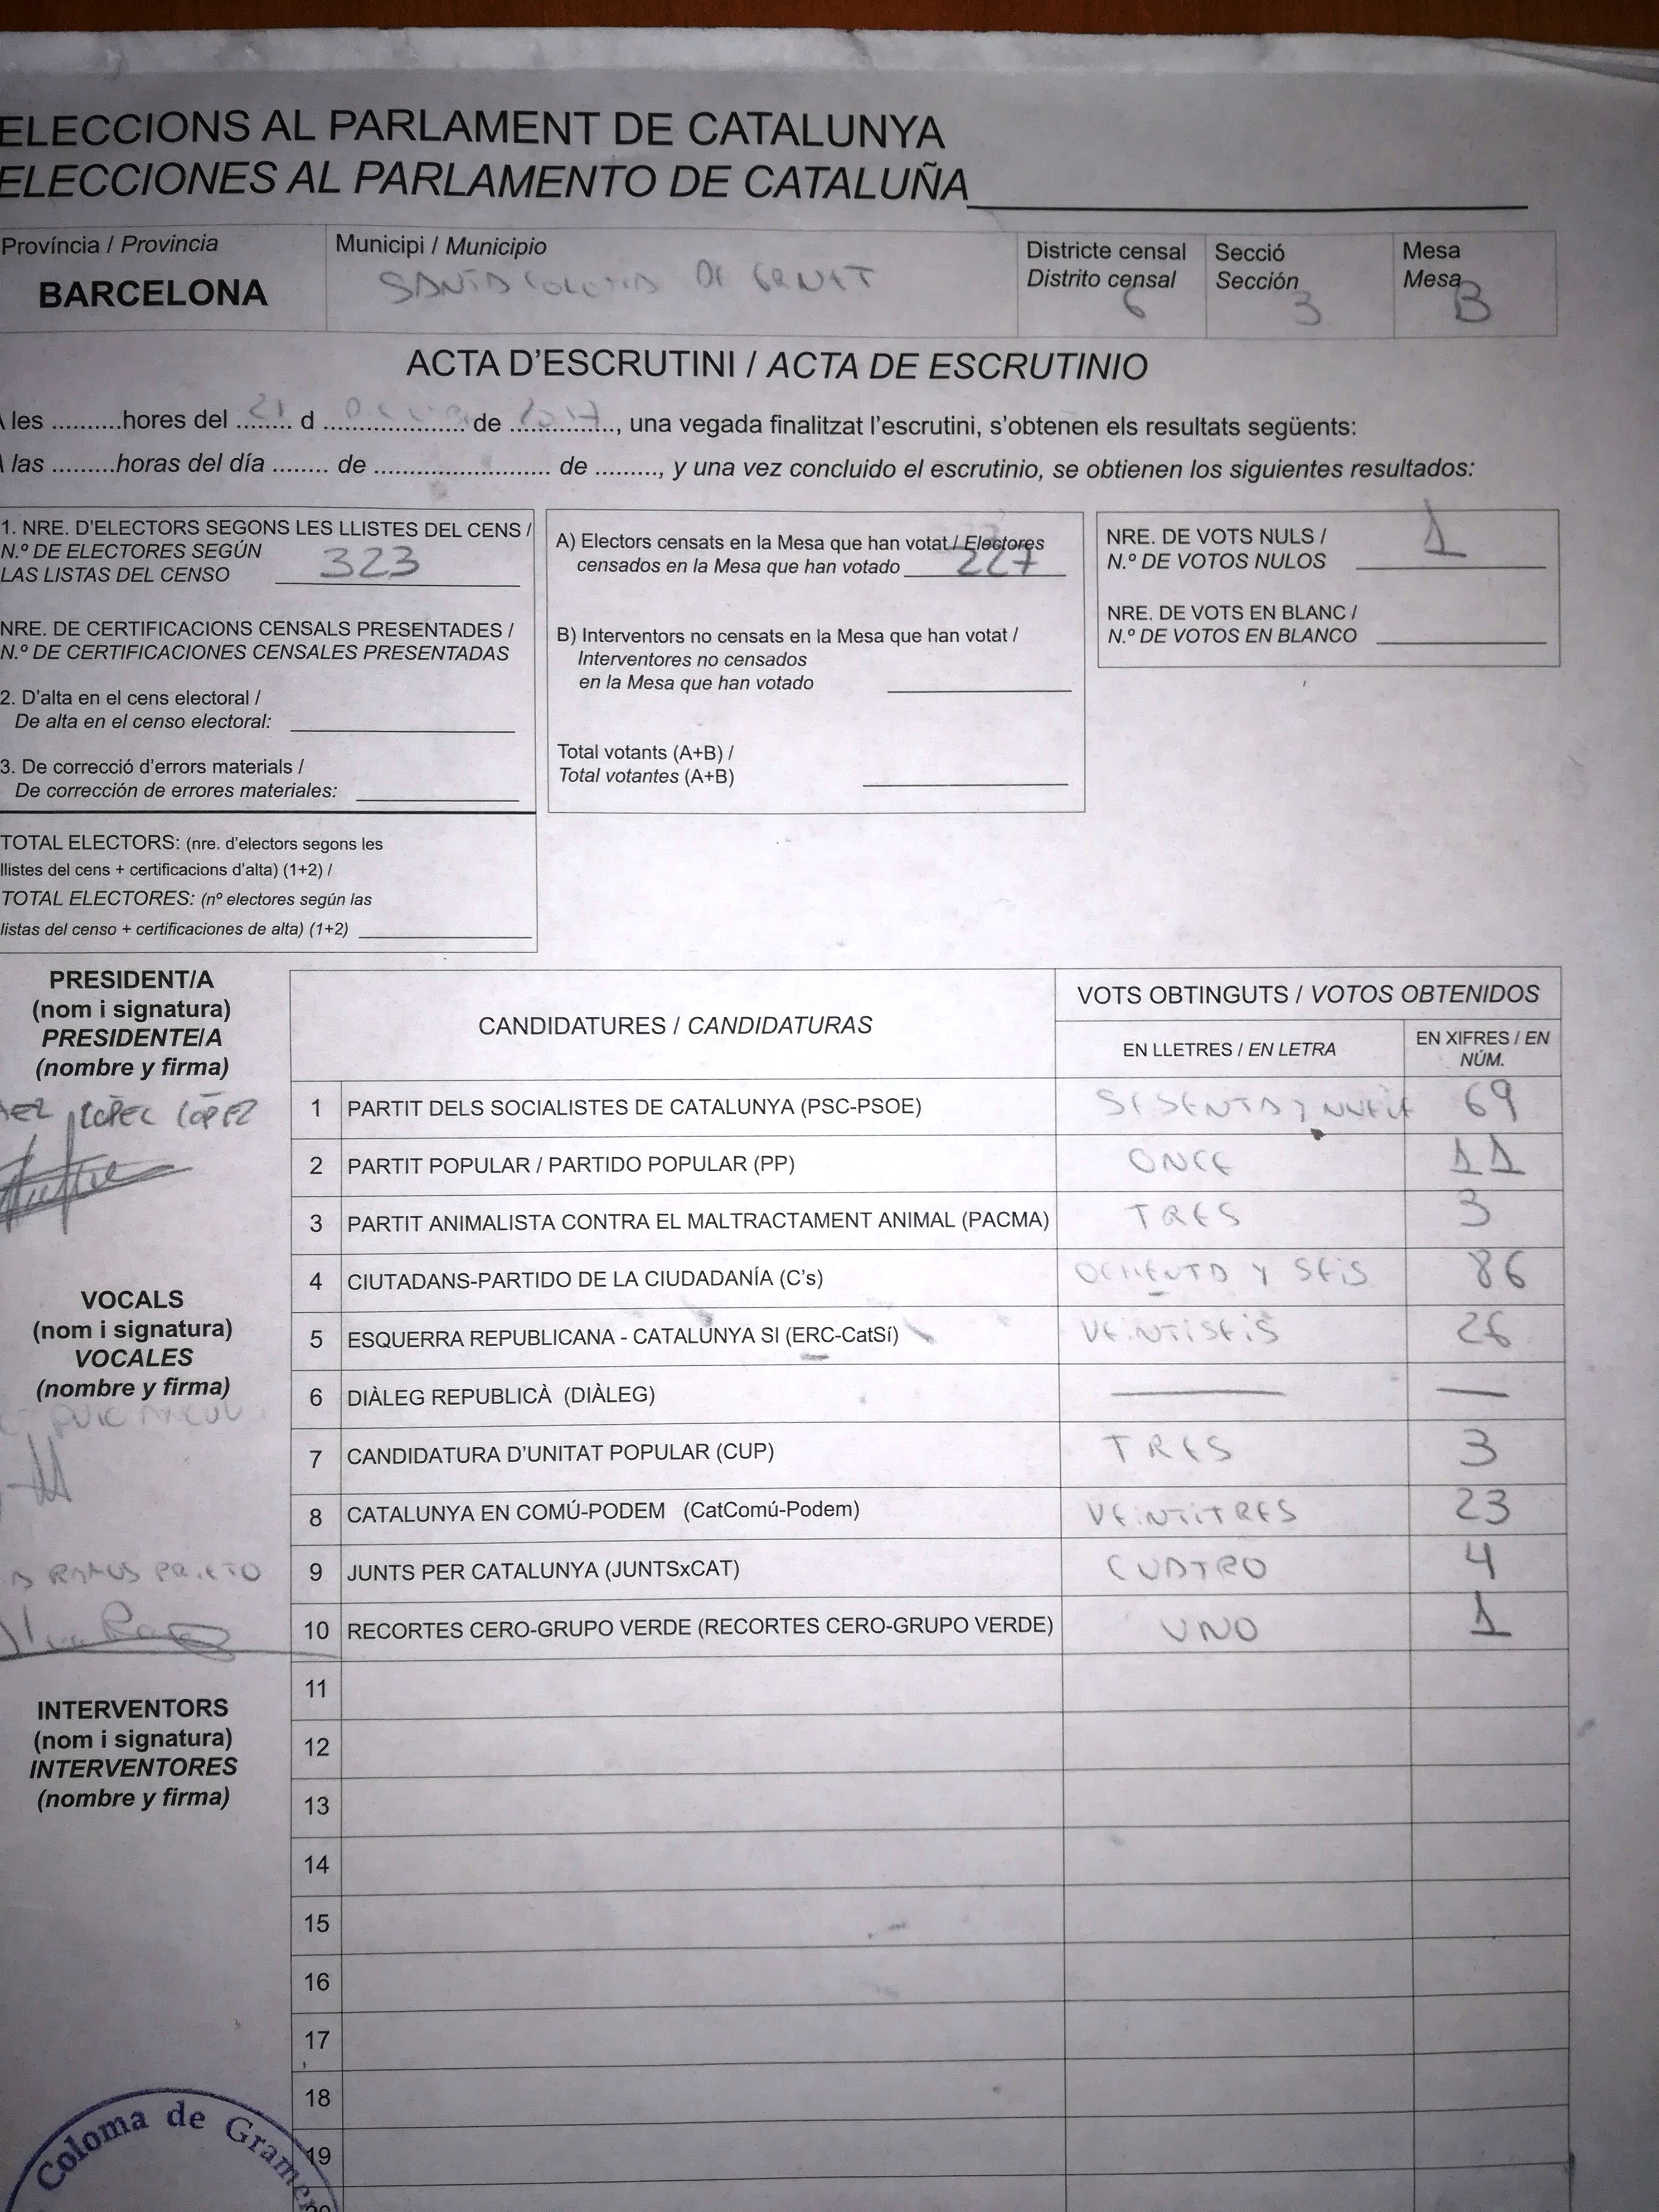 ELECCIONS AL PARLAMENT DE CATALUNYA
ELECCIONES AL PARLAMENTO DE CATALUÑA
Província / Provincia
BARCELONA
Municipi / Municipio
SANTA COLOMA DE GRNET
Districte censal
Distrito censal
6
Secció
Sección
3
Mesa
Mesa
B
ACTA D'ESCRUTINI / ACTA DE ESCRUTINIO
les ..........hores del 21 d .................... de 2017, una vegada finalitzat l'escrutini, s'obtenen els resultats següents:
las .........horas del día ........ de ......................... de ........., y una vez concluido el escrutinio, se obtienen los siguientes resultados:
1. NRE. D'ELECTORS SEGONS LES LLISTES DEL CENS /
N.º DE ELECTORES SEGÚN
LAS LISTAS DEL CENSO 323
NRE. DE CERTIFICACIONS CENSALS PRESENTADES /
N.º DE CERTIFICACIONES CENSALES PRESENTADAS
2. D'alta en el cens electoral /
De alta en el censo electoral:
3. De correcció d'errors materials /
De corrección de errores materiales:
TOTAL ELECTORS: (nre. d'electors segons les
llistes del cens + certificacions d'alta) (1+2) /
TOTAL ELECTORES: (nº electores según las
listas del censo + certificaciones de alta) (1+2)
A) Electors censats en la Mesa que han votat / Electores
censados en la Mesa que han votado 227
B) Interventors no censats en la Mesa que han votat /
Interventores no censados
en la Mesa que han votado
Total votants (A+B) /
Total votantes (A+B)
NRE. DE VOTS NULS /
N.º DE VOTOS NULOS 1
NRE. DE VOTS EN BLANC /
N.º DE VOTOS EN BLANCO
PRESIDENT/A
(nom i signatura)
PRESIDENTE/A
(nombre y firma)
LÓPEZ LÓPEZ
VOCALS
(nom i signatura)
VOCALES
(nombre y firma)
PUIG
RAMOS PRIETO
INTERVENTORS
(nom i signatura)
INTERVENTORES
(nombre y firma)
CANDIDATURES / CANDIDATURAS
VOTS OBTINGUTS / VOTOS OBTENIDOS
EN LLETRES / EN LETRA
EN XIFRES / EN
NÚM.
1 PARTIT DELS SOCIALISTES DE CATALUNYA (PSC-PSOE) SESENTA Y NUEVE 69
2 PARTIT POPULAR / PARTIDO POPULAR (PP) ONCE 11
3 PARTIT ANIMALISTA CONTRA EL MALTRACTAMENT ANIMAL (PACMA) TRES 3
4 CIUTADANS-PARTIDO DE LA CIUDADANÍA (C's) OCHENTA Y SEIS 86
5 ESQUERRA REPUBLICANA - CATALUNYA SI (ERC-CatSí) VEINTISEIS 26
6 DIÀLEG REPUBLICÀ (DIÀLEG) — —
7 CANDIDATURA D'UNITAT POPULAR (CUP) TRES 3
8 CATALUNYA EN COMÚ-PODEM (CatComú-Podem) VEINTITRES 23
9 JUNTS PER CATALUNYA (JUNTSxCAT) CUATRO 4
10 RECORTES CERO-GRUPO VERDE (RECORTES CERO-GRUPO VERDE) UNO 1
11
12
13
14
15
16
17
18
19
20
Coloma de Gramen